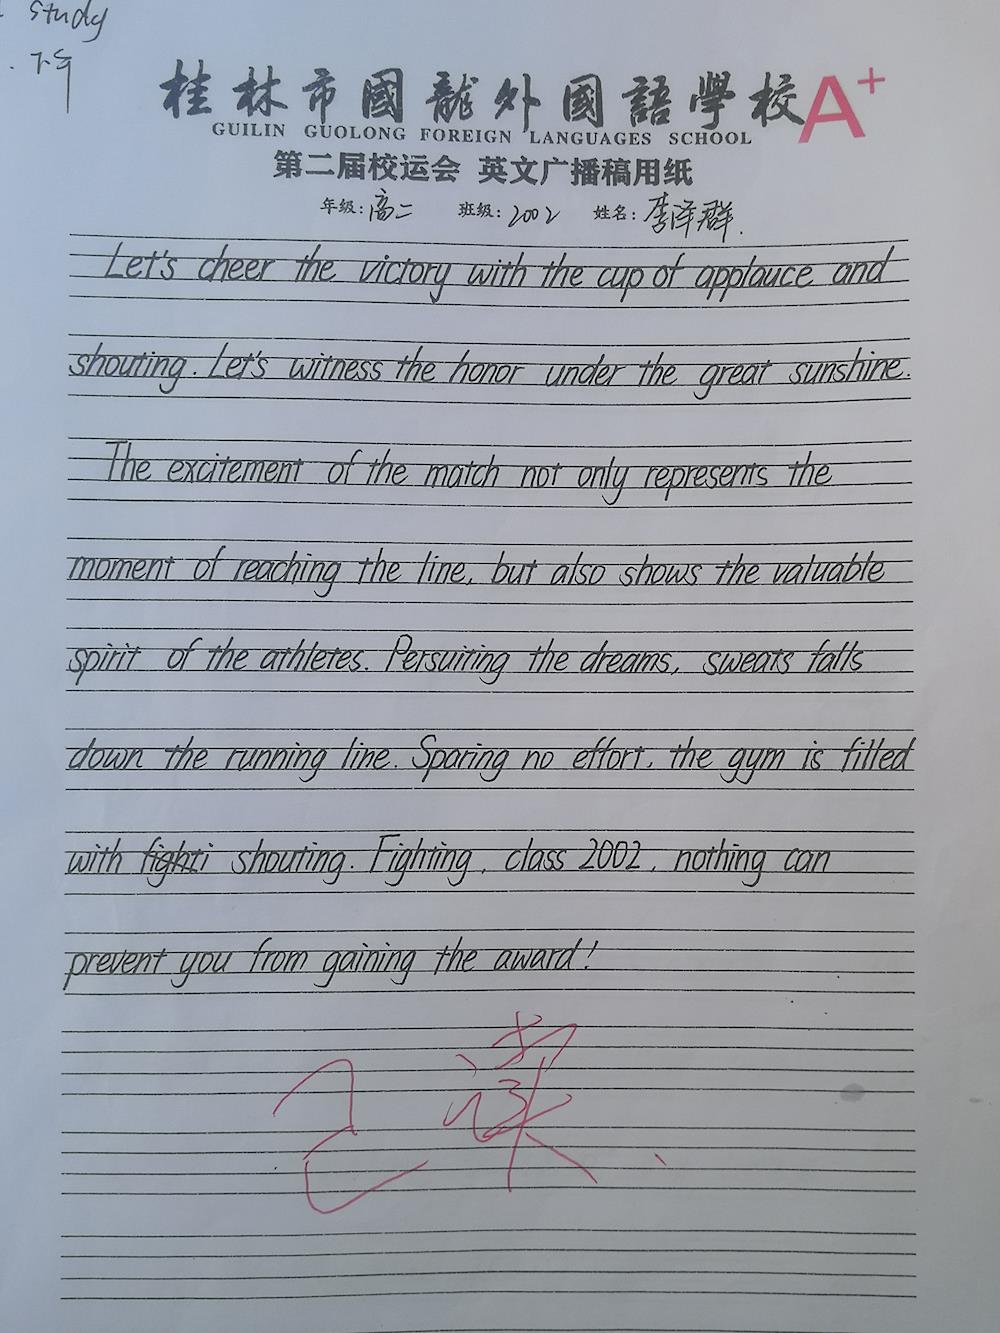 study
桂林市國龍外國語學校
A+
GUILIN GUOLONG FOREIGN LANGUAGES SCHOOL
第二届校运会 英文广播稿用纸
年级: 高二 班级: 2002 姓名: 李泽群
Let's cheer the victory with the cup of applauce and
shouting. Let's witness the honor under the great sunshine.
The excitement of the match not only represents the
moment of reaching the line, but also shows the valuable
spirit of the athletes. Persuiting the dreams, sweats falls
down the running line. Sparing no effort, the gym is filled
with fighti shouting. Fighting, class 2002, nothing can
prevent you from gaining the award!